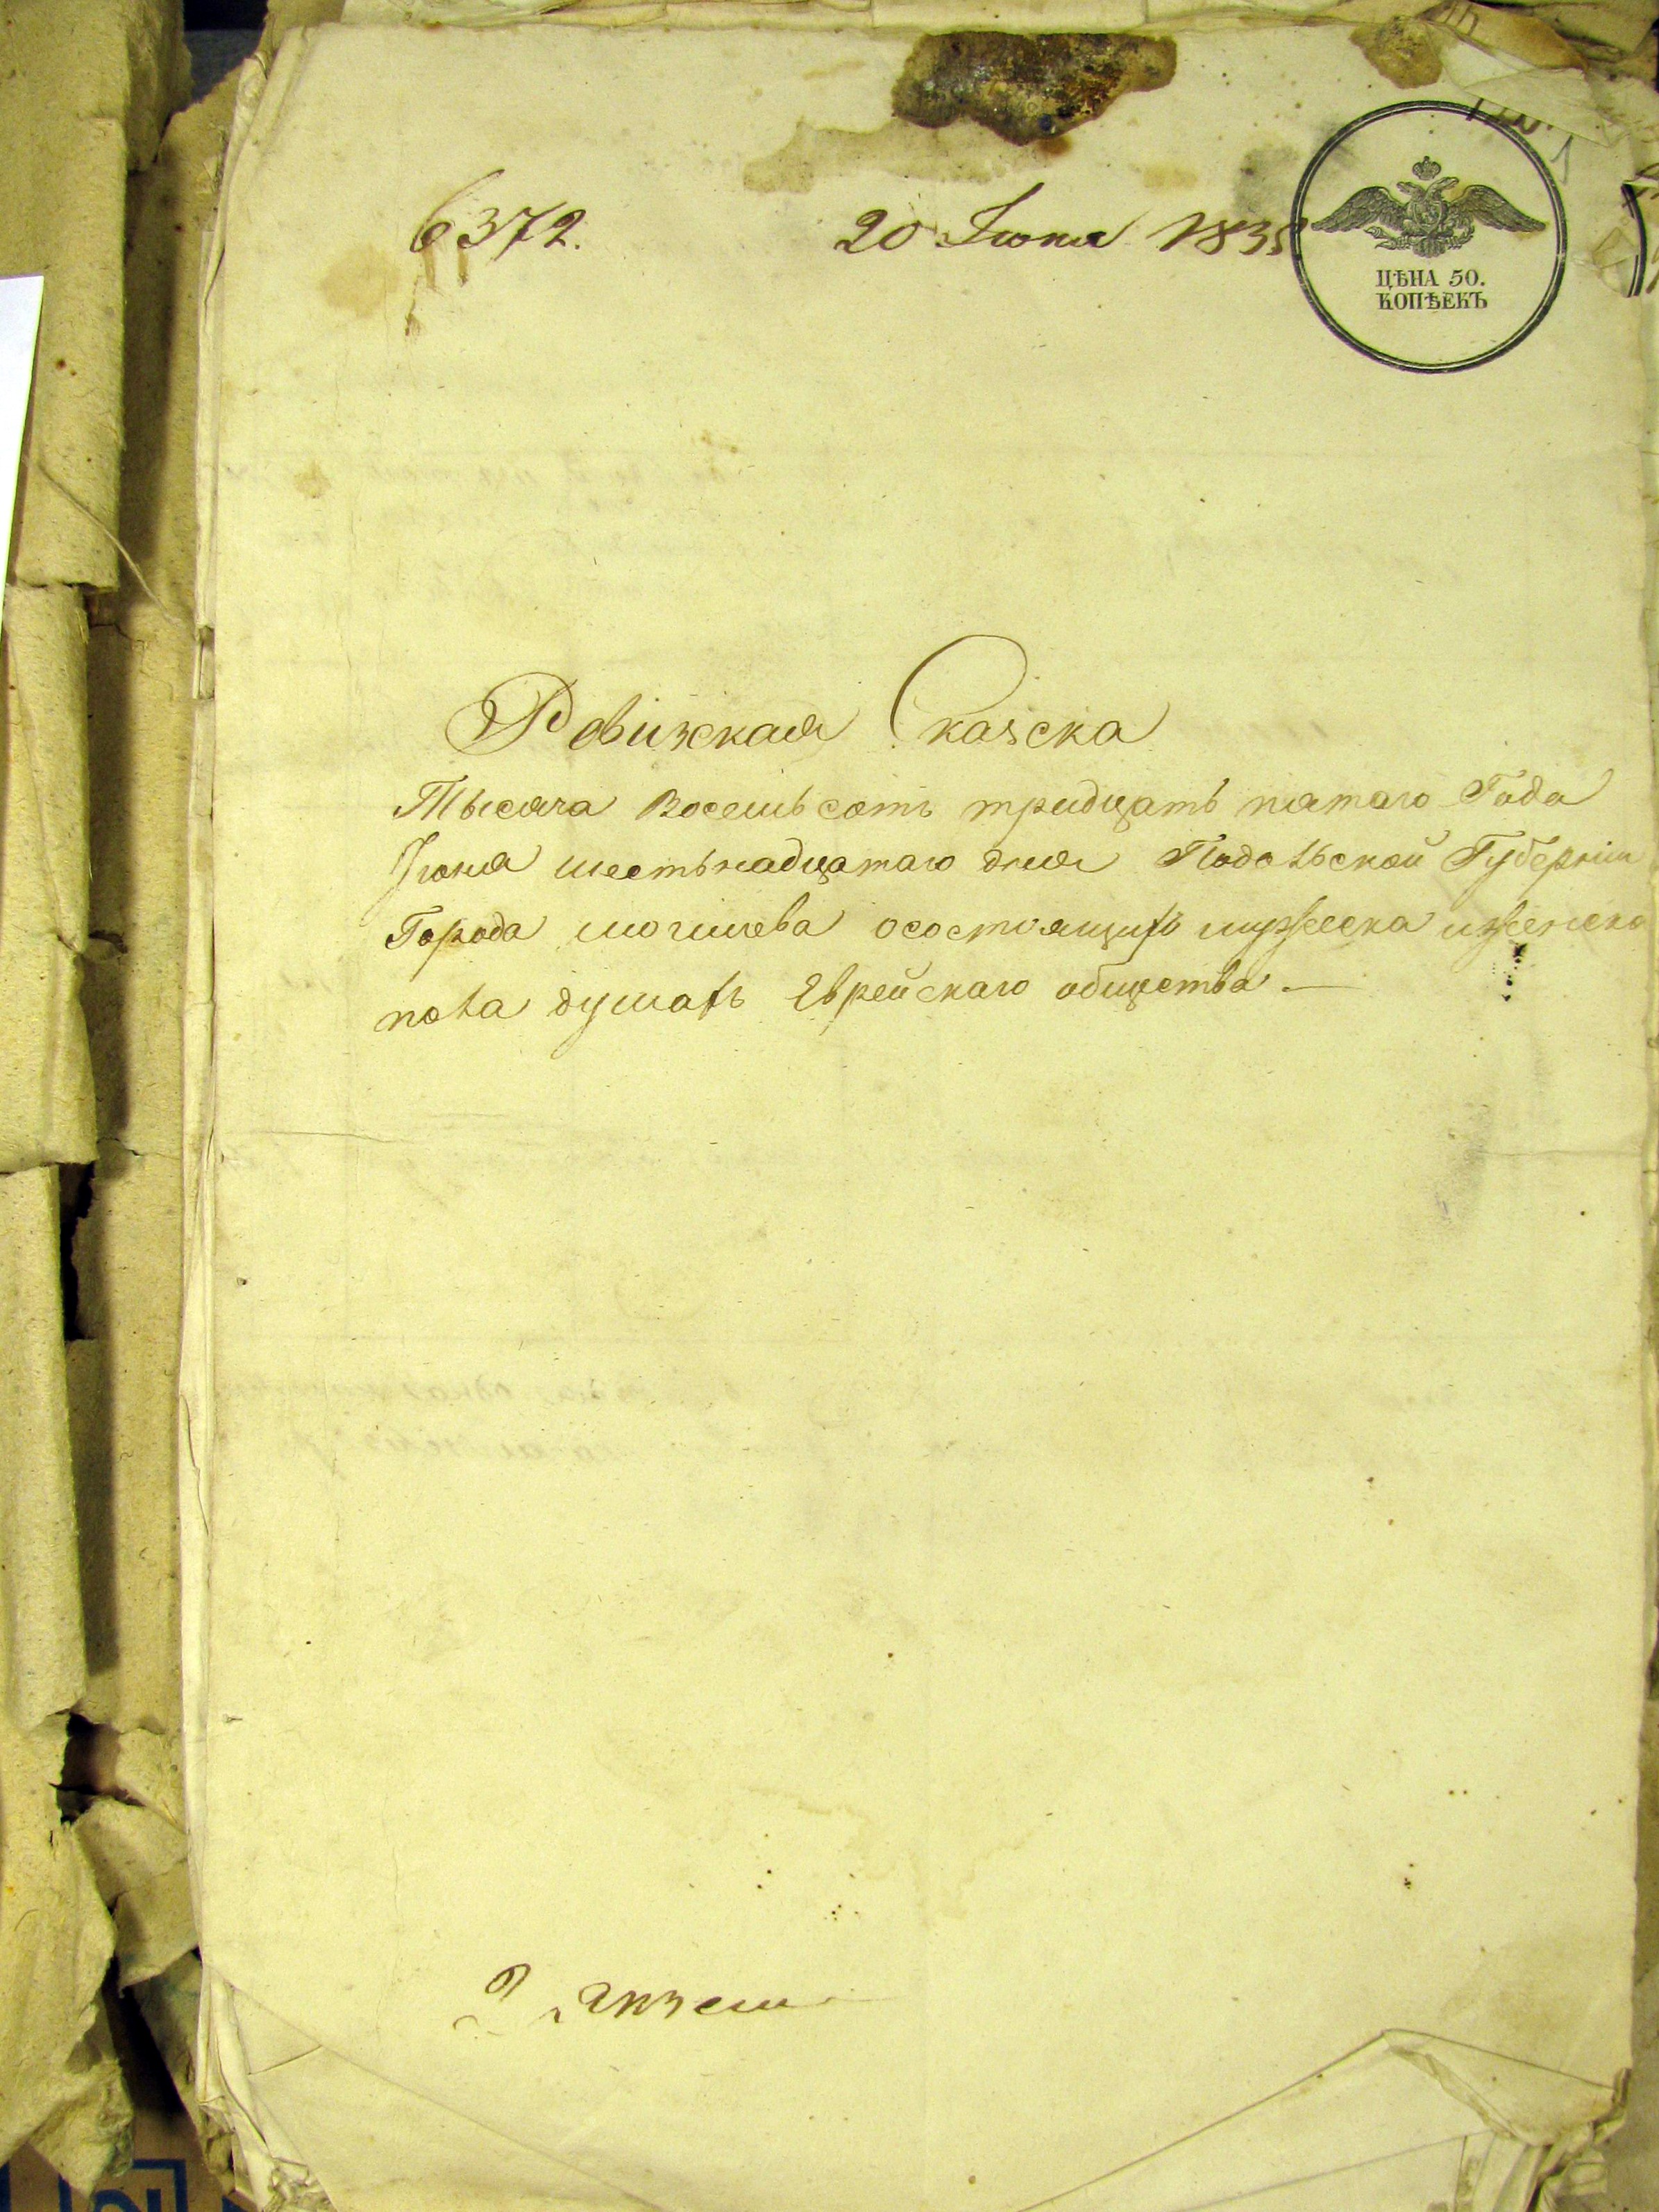 6372.
20 Июня 1835
ЦѢНА 50.
КОПѢЕКЪ
Ревизская Сказска
Тысяча восемьсотъ тридцать пятаго Года
Iюня шестьнадцатаго дня Подольской Губернiи
Города могилева осостоящихъ мужеска иженска
пола душахъ Еврейскаго общества. —